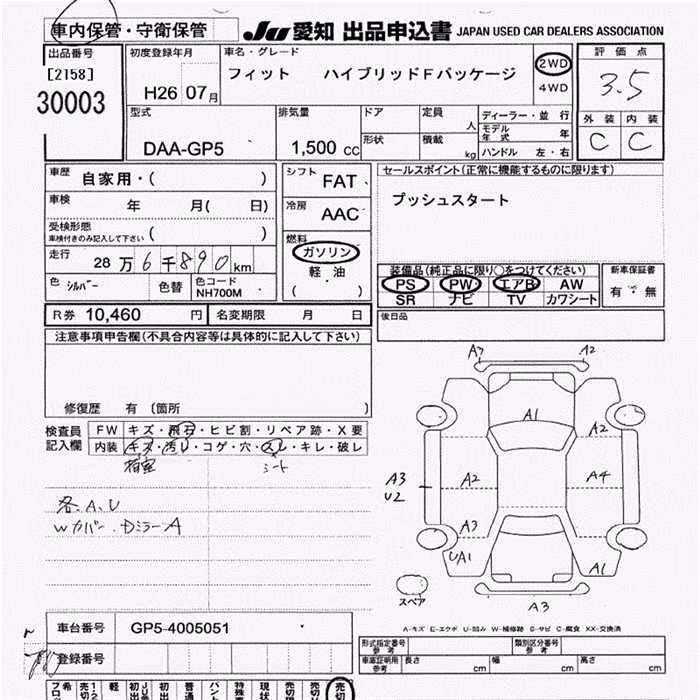 車内保管・守衛保管 JU 愛知 出品申込書 JAPAN USED CAR DEALERS ASSOCIATION
出品番号 [2158] 30003
初度登録年月 H26 07月
車名・グレード フィット ハイブリッドFパッケージ 2WD 4WD
評価点 3.5
外装 内装 C C
型式 DAA-GP5
排気量 1,500 cc
ドア 形状
定員 人 積載 kg
ディーラー・並行
モデル年式 年
ハンドル 左・右
車歴 自家用・( )
車検 年 月( 日)
受検形態 車検付きのみ記入して下さい ( )
走行 28万6千890km
色 シルバー 色替 色コード NH700M
シフト FAT
冷房 AAC
燃料 ガソリン 軽油 ( )
セールスポイント(正常に機能するものに限ります)
プッシュスタート
装備品(純正品に限り○をつけてください) 新車保証書
PS PW エアB AW 有・無
SR ナビ TV カワシート
R券 10,460 円 名変期限 月 日
後日品
注意事項申告欄(不具合内容等は具体的に記入して下さい)
修復歴 有 〔箇所 〕
検査員記入欄
FW キズ・飛石・ヒビ割・リペア跡・X要
内装 キズ・汚レ・コゲ・穴・スレ・キレ・破レ
シート
各A、U
Wカバー、DミラーA
A3 A2
A1
A2
A3 U2 A2 A4
A3
UA1 A1
スペア A3
A-キズ E-エクボ U-凹み W-補修跡 S-サビ C-腐食 XX-交換済
車台番号 GP5-4005051
登録番号
形式指定番号 参考 類別区分番号 参考
車庫証明用 参考 長さ cm 幅 cm 高さ cm